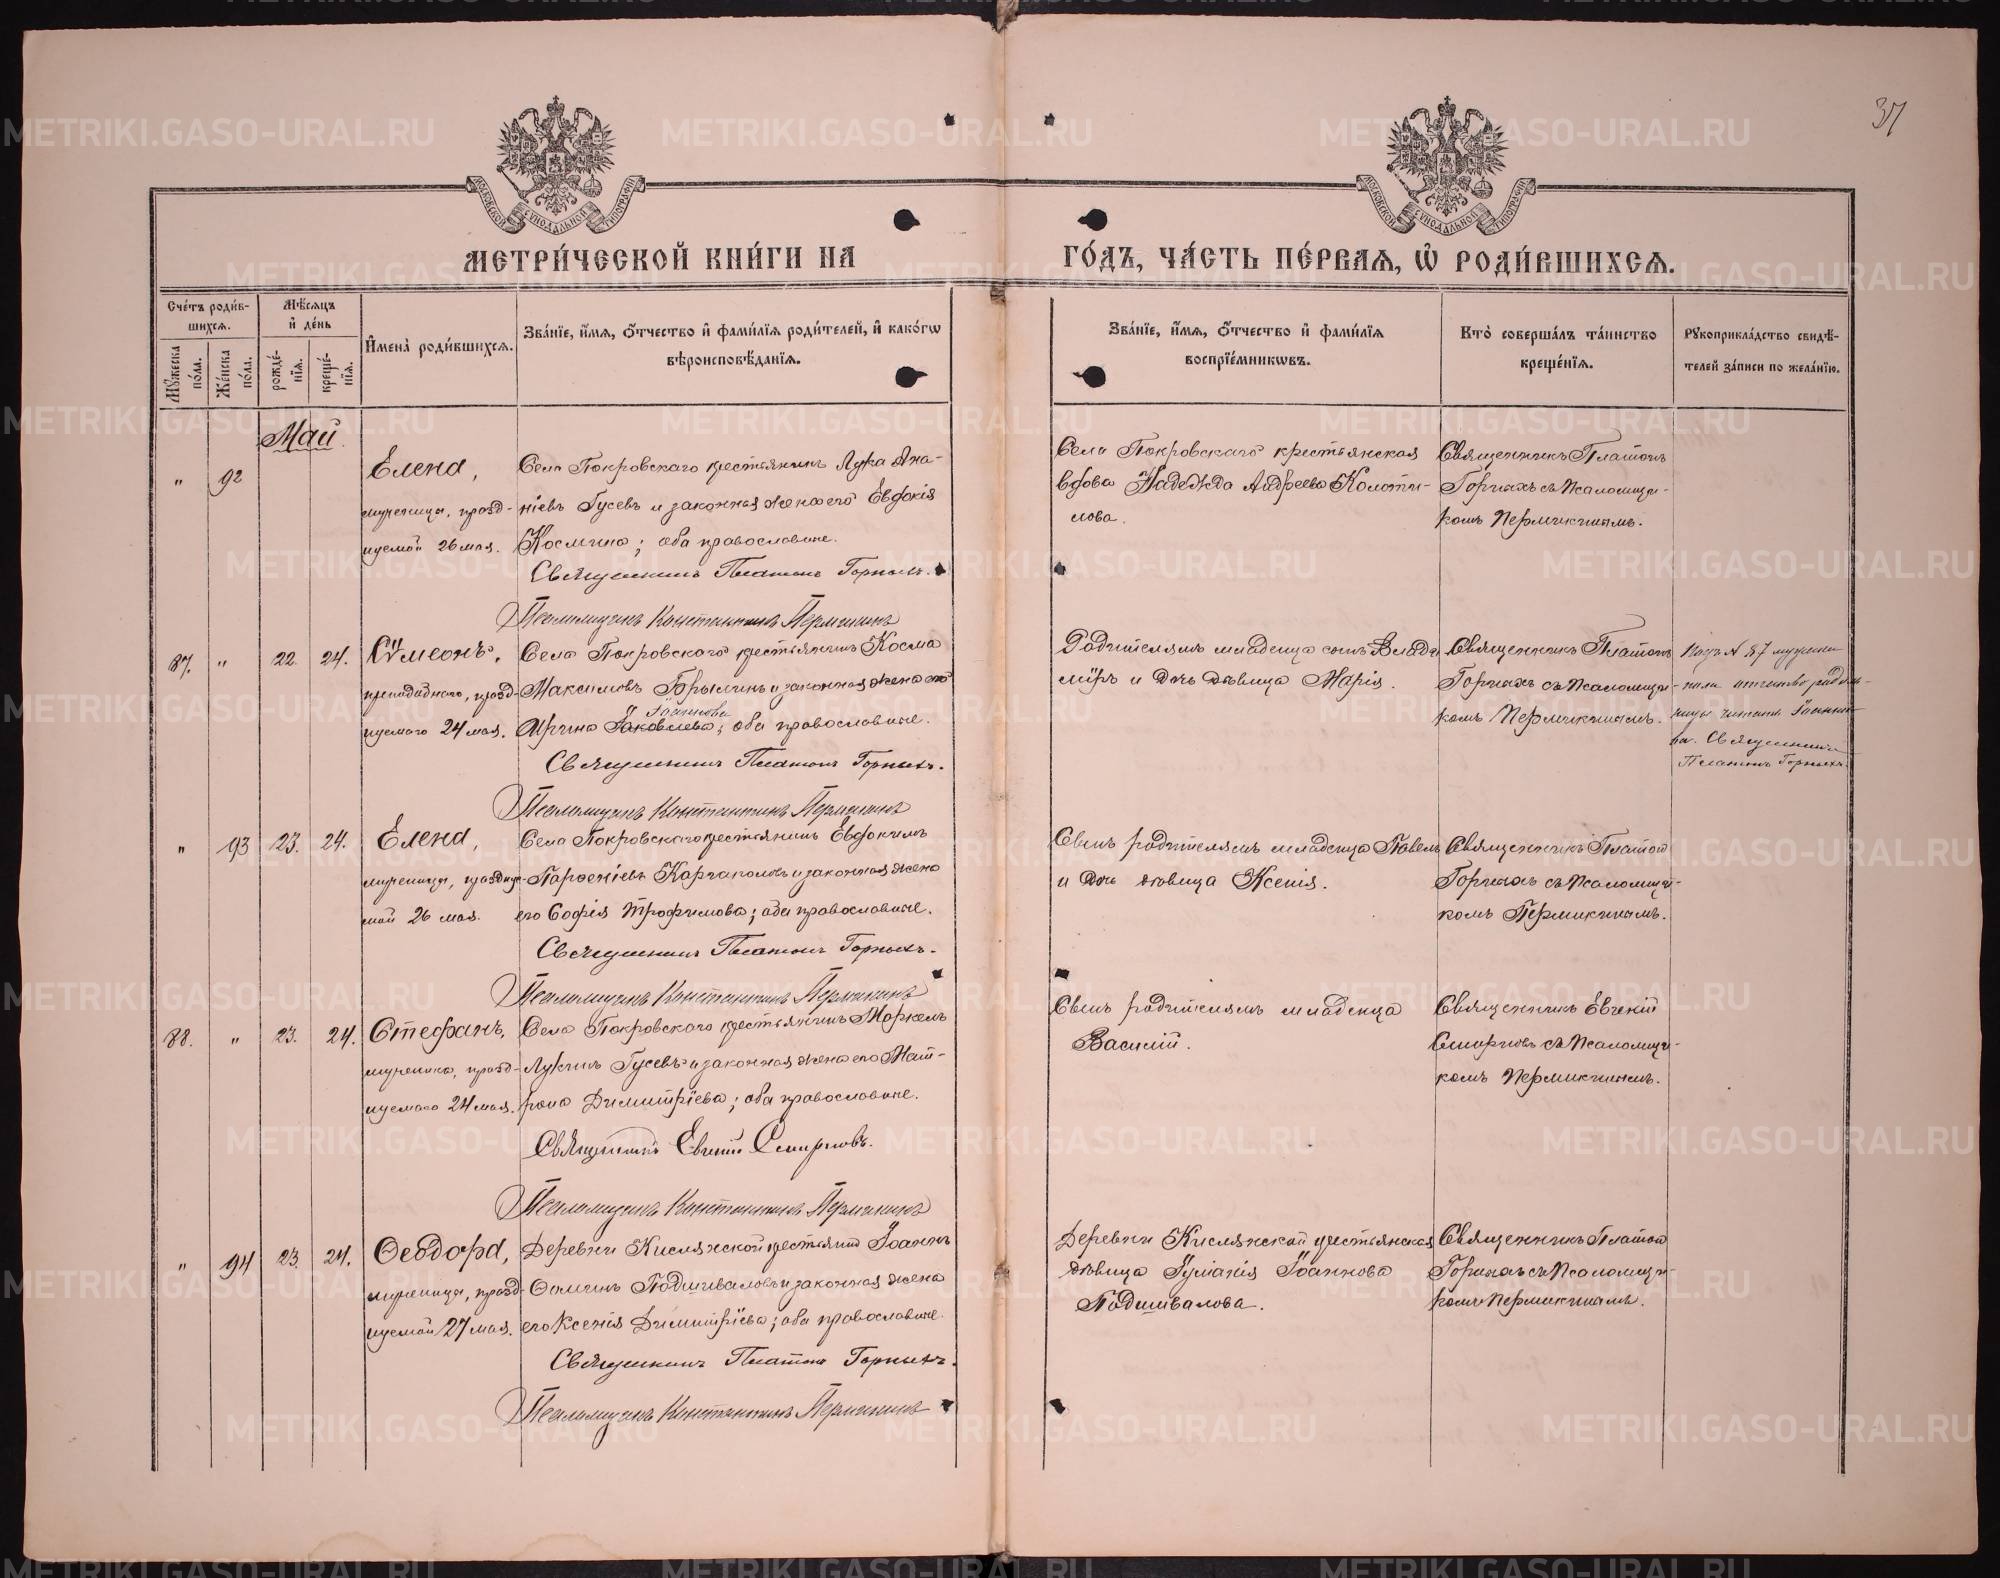 37
МОСКОВСКОЙ СѴНОДАЛЬНОЙ ТИПОГРАФІИ
МОСКОВСКОЙ СѴНОДАЛЬНОЙ ТИПОГРАФІИ
МЕТРИ́ЧЕСКОЙ КНИ́ГИ НА
ГО́ДЪ, ЧА́СТЬ ПЕ́РВАѦ, Ѡ҆ РОДИ́ВШИХСѦ.
Сче́тъ роди́в-
шихсѧ.
Мꙋ́жеска по́ла.
Же́нска по́ла.
Мѣ́сѧцъ
и҆ де́нь
рожде́-
нїѧ.
креще́-
нїѧ.
И҆мена̀ роди́вшихсѧ.
Зва́нїе, и҆́мѧ, ѻ҆́тчество и҆ фами́лїѧ роди́телей, и҆ како́гѡ
вѣроисповѣ́данїѧ.
Зва́нїе, и҆́мѧ, ѻ҆́тчество и҆ фами́лїѧ
воспрїе́мникѡвъ.
Кто̀ соверша́лъ та́инство
креще́нїѧ.
Рꙋкоприкла́дство свидѣ́-
телей за́писи по жела́нїю.
Май.
" 92
Елена,
мученица, празд-
нуемой 26 мая.
Села Покровскаго крестьянинъ Лука Ана-
ніевъ Гусевъ и законная жена его Евдокія
Космина; оба православные.
Священникъ Платонъ Горныхъ.
Псаломщикъ Константинъ Пермикинъ
Села Покровскаго крестьянская
вдова Надежда Андреева Колоти-
лова.
Священникъ Платонъ
Горныхъ съ псаломщи-
комъ Пермикинымъ.
87. " 22. 24.
Сѵмеонъ,
преподобнаго, празд-
нуемаго 24 мая.
Села Покровскаго крестьянинъ Косма
Максимовъ Брылинъ и законная жена его
Іоаннова
Ирина Іаковлева; оба православные.
Священникъ Платонъ Горныхъ.
Псаломщикъ Константинъ Пермикинъ
Родителямъ младенца сынъ Влади
міръ и дочь дѣвица Марія.
Священникъ Платонъ
Горныхъ съ псаломщи-
комъ Пермикинымъ.
Подъ № 87
отчество родитель-
ницы читать Іоанно-
ва. Священникъ
Платонъ Горныхъ.
" 93 23. 24.
Елена,
мученица, празднуе-
мой 26 мая.
Села Покровскаго крестьянинъ Евдокимъ
Парѳеніевъ Карпаполовъ и законная жена
его Софія Трофимова; оба православные.
Священникъ Платонъ Горныхъ.
Псаломщикъ Константинъ Пермикинъ
Сынъ родителямъ младенца Павелъ
и дочь дѣвица Ксенія.
Священникъ Платонъ
Горныхъ съ псаломщи-
комъ Пермикинымъ.
88. " 23. 24.
Стефанъ,
мученика, празд-
нуемаго 24 мая.
Села Покровскаго крестьянинъ Маркелъ
Лукинъ Гусевъ и законная жена его Мат-
рона Димитріева; оба православные.
Священникъ Евгеній Смирновъ.
Псаломщикъ Константинъ Пермикинъ
Сынъ родителямъ младенца
Василій.
Священникъ Евгеній
Смирновъ съ псаломщи-
комъ Пермикинымъ.
" 94 23. 24.
Ѳеодора,
мученица, празд-
нуемой 27 мая.
Деревни Кислянской крестьянинъ Іоаннъ
Ѳоминъ Подшиваловъ и законная жена
его Ксенія Димитріева; оба православные.
Священникъ Платонъ Горныхъ.
Псаломщикъ Константинъ Пермикинъ
Деревни Кислянской крестьянская
дѣвица Іуліанія Іоаннова
Подшивалова.
Священникъ Платонъ
Горныхъ съ псаломщи-
комъ Пермикинымъ.
METRIKI.GASO-URAL.RU